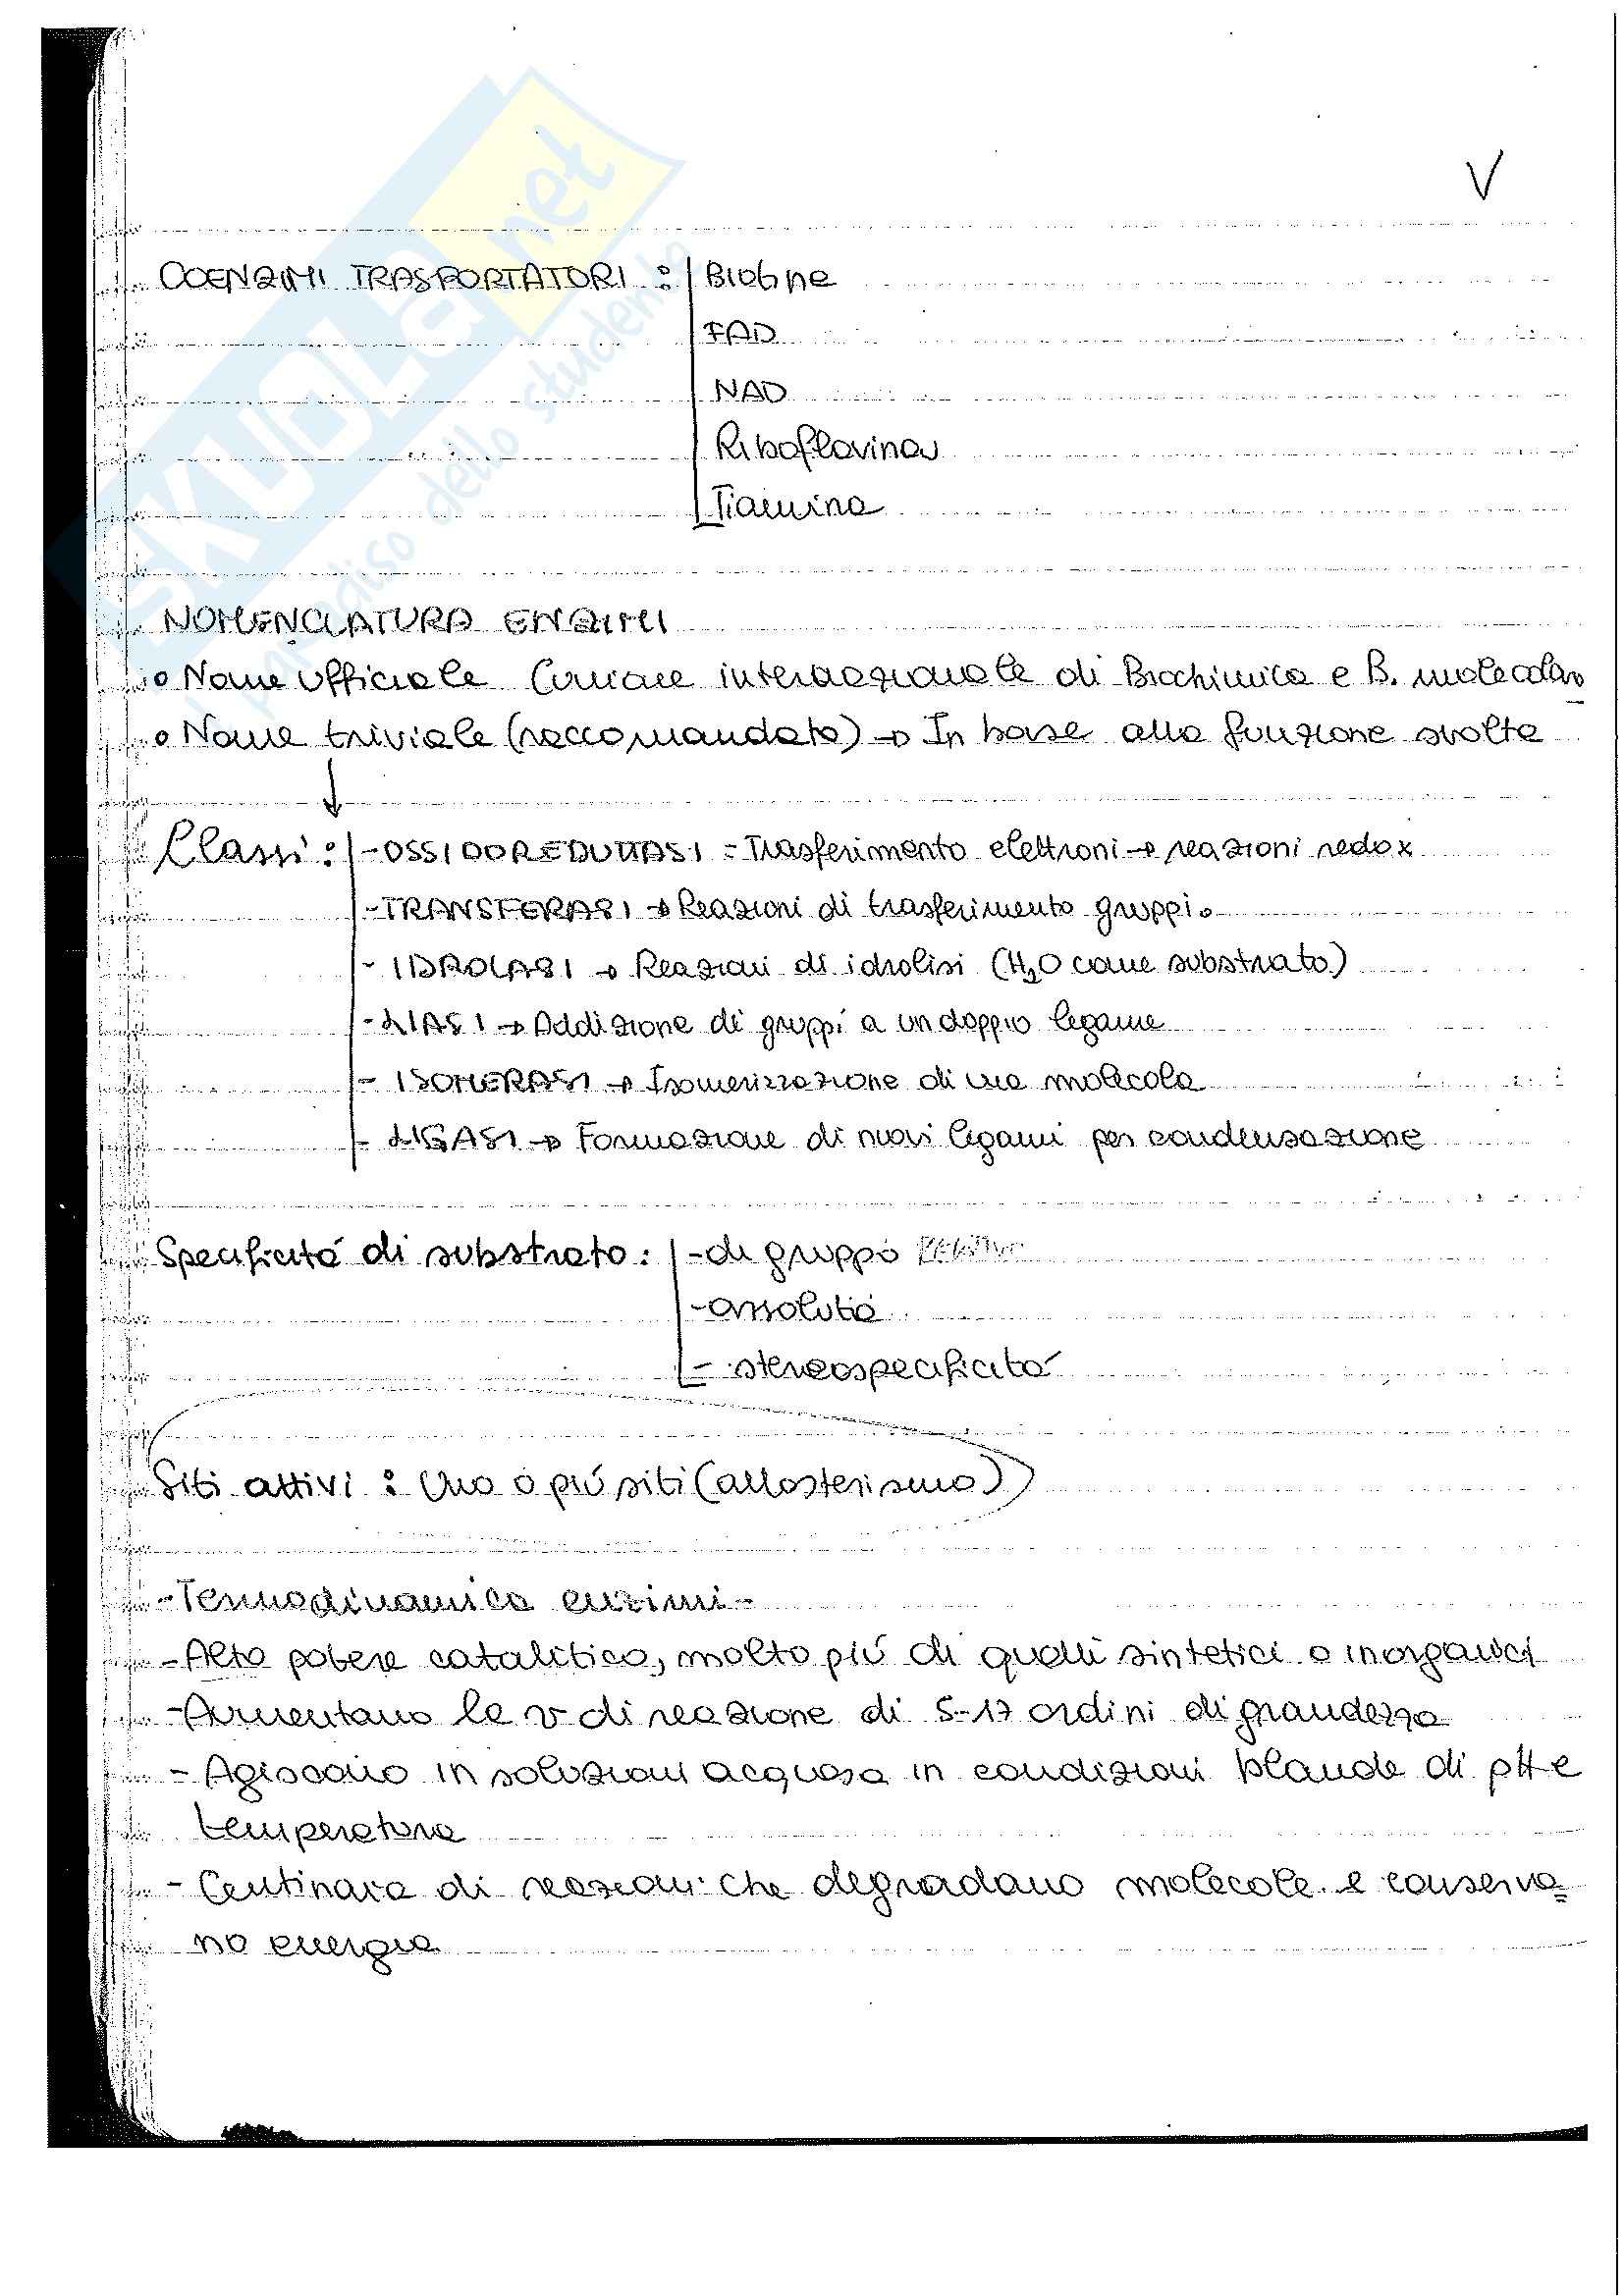 V
COENZIMI TRASPORTATORI : Biotine
FAD
NAD
Riboflavina
Tiamina
NOMENCLATURA ENZIMI
o Nome ufficiale Comiare internazionale di Biochimica e B. molecolar
o Nome triviale (raccomandato) → In base alla funzione svolta
Classi : - OSSIDOREDUTTASI = Trasferimento elettroni → reazioni redox
- TRANSFERASI → Reazioni di trasferimento gruppi.
- IDROLASI → Reazioni di idrolisi (H₂O come substrato)
- LIASI → Addizione di gruppi a un doppio legame
- ISOMERASI → Isomerizzazione di una molecola
- LIGASI → Formazione di nuovi legami per condensazione
Specificità di substrato : - di gruppo
- assoluta
- stereospecificità
Siti attivi : Uno o più siti (allosterismo)
- Termodinamica enzimi -
- Alto potere catalitico, molto più di quelli sintetici o inorganici
- Aumentano la v di reazione di 5-17 ordini di grandezza
- Agiscono in soluzioni acquosa in condizioni blande di pH e
temperatura
- Centinaia di reazioni che degradano molecole e conserva=
no energia
SKUOLA.net
paradiso dello studente